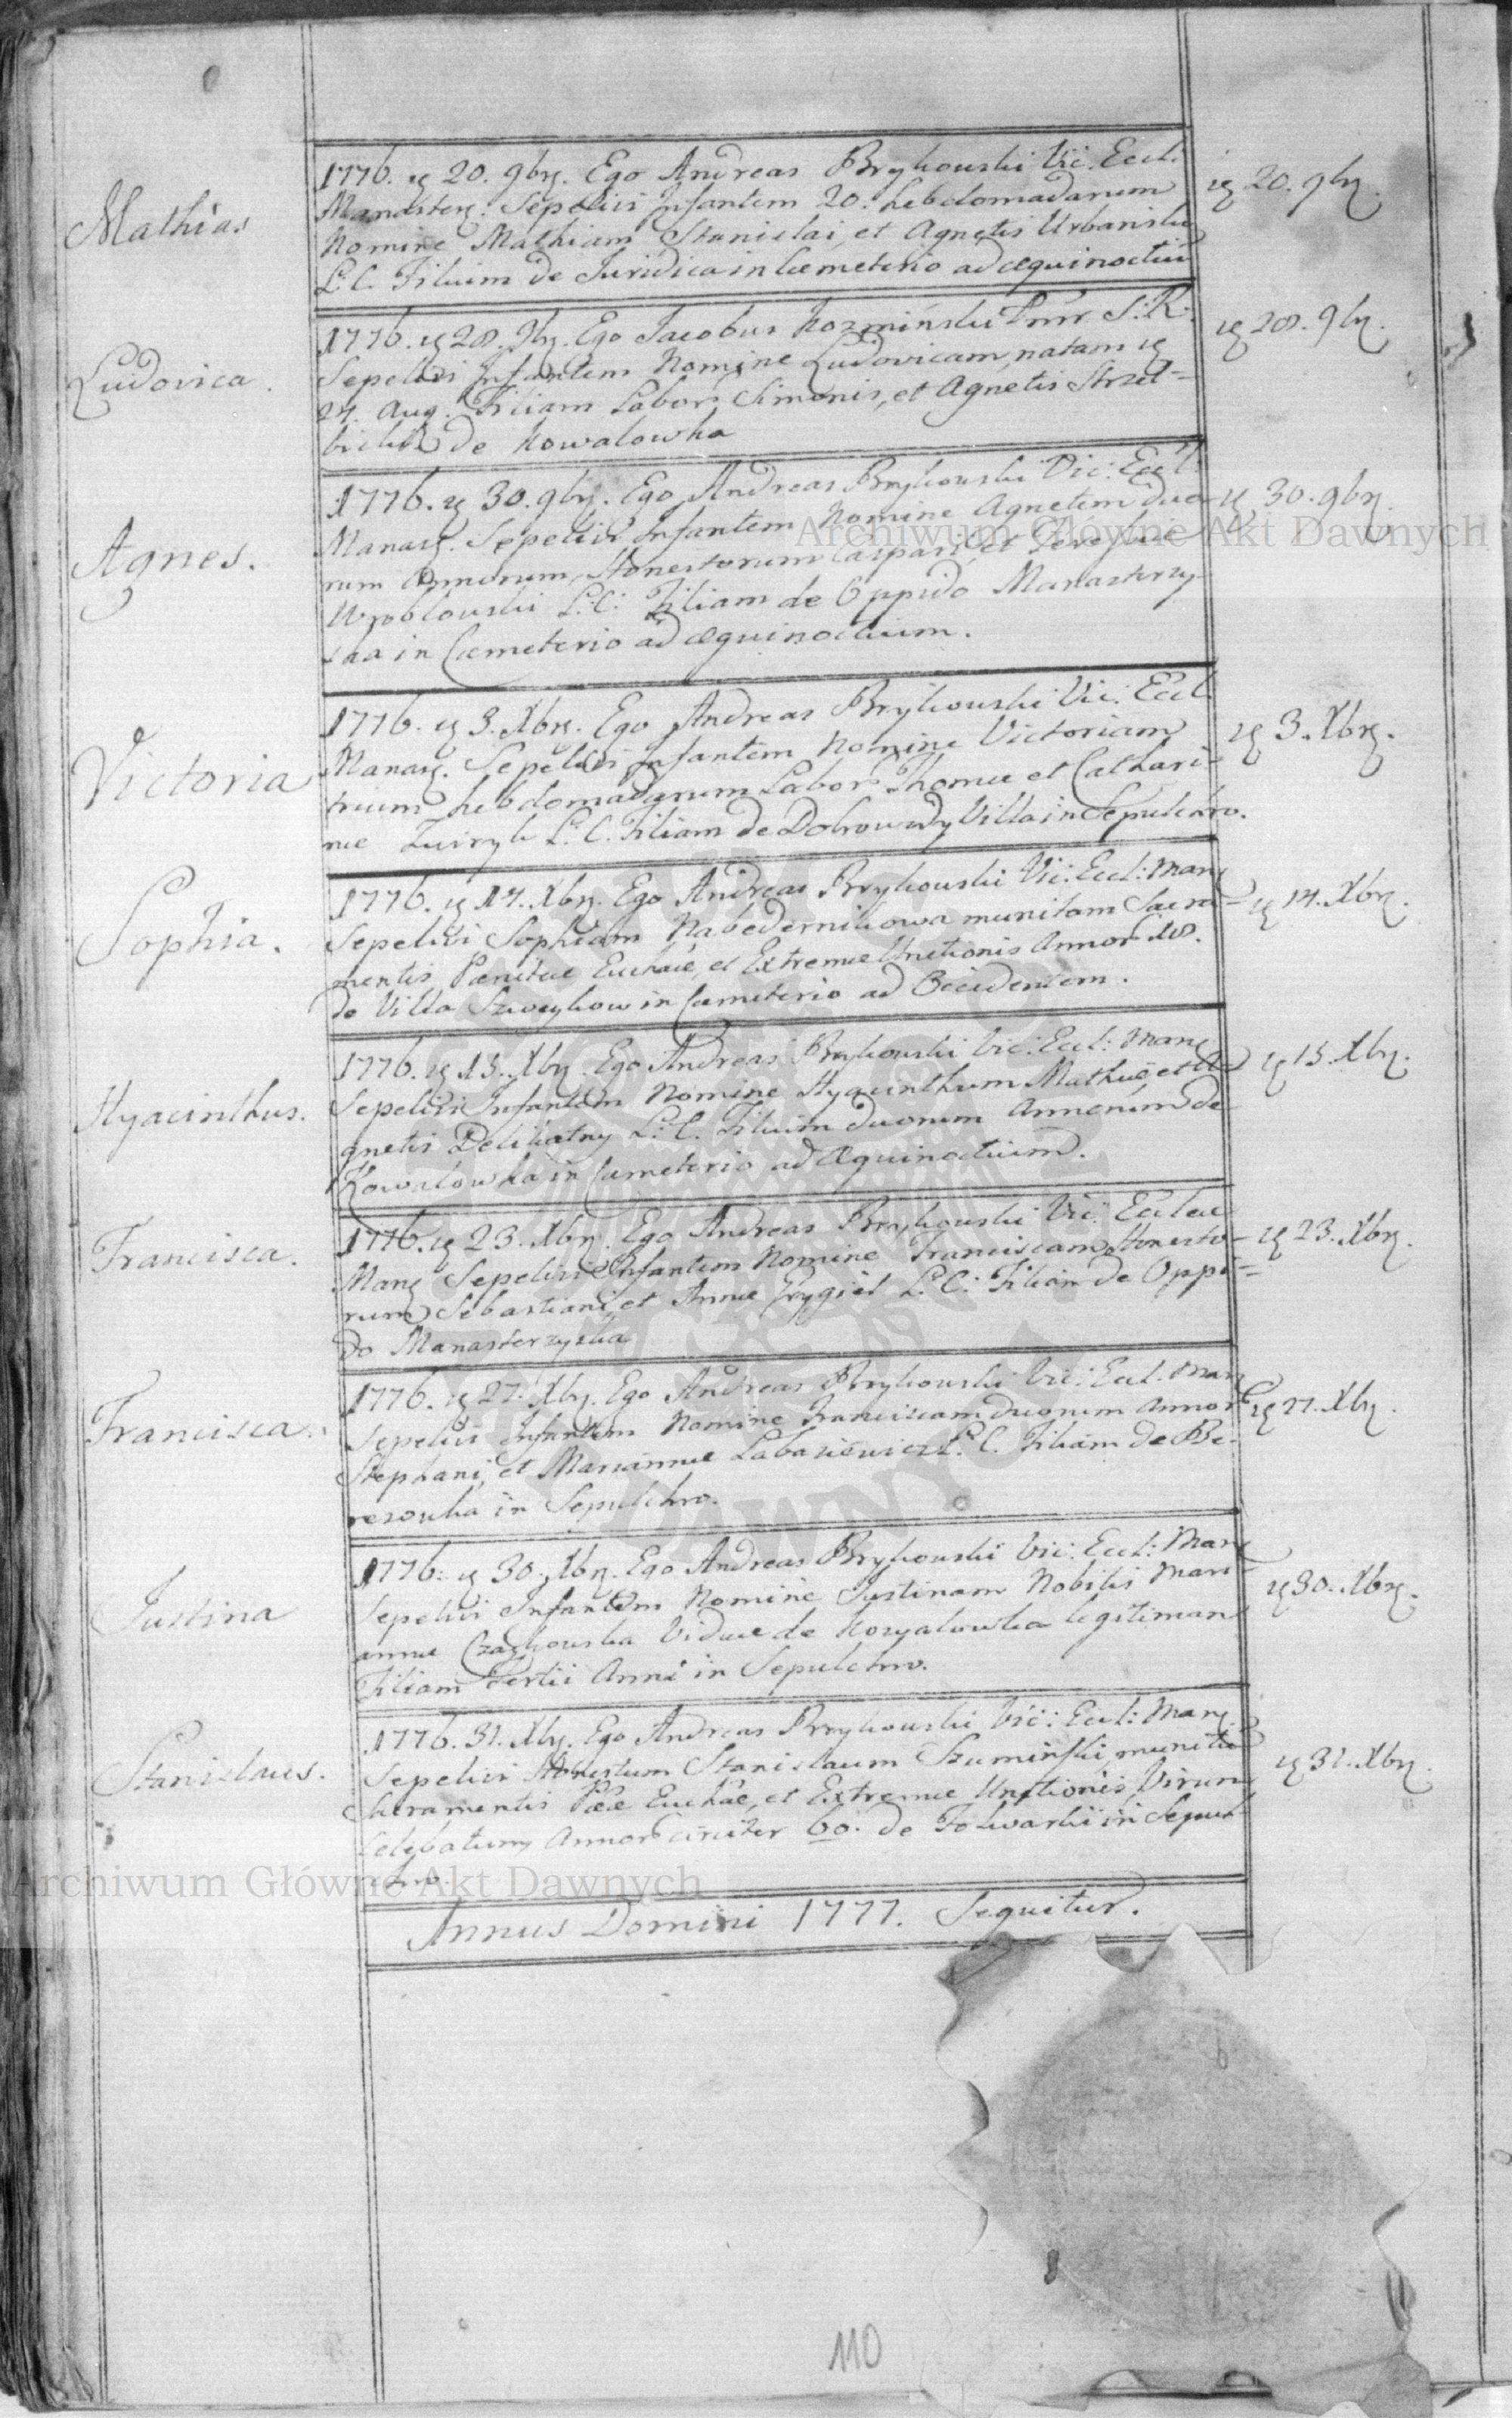 Mathias
1776. 20. 9br. Ego Andreas Brykowski Vic: Eccl.
Manaster: Sepelivi Infantem 20. hebdomadarum
Nomine Mathiam Stanislai, et Agnetis Urbanski
L.C. Filium de Juridica in Cœmeterio ad æquinoctiu
20. 9br.
Ludovica.
1776. 28. 9br. Ego Jacobus Kozmiński S: R:
Sepelivi Infantem Nomine Ludovicam, natam
24. Aug. Filiam Labor Simonis, et Agnetis Strzel=
bicki de Kowalowka
28. 9br.
Agnes.
1776. 30. 9br. Ego Andreas Brykowski Vic: Eccl.
Manas. Sepelivi Infantem Nomine Agnetem duo
rum Annorum, Honestorum Caspari, et
Wroblowski L:C: Filiam de Oppido Manasterzy-
ska in Cœmeterio ad æquinoctium.
30. 9br.
Victoria
1776. 3. Xbr. Ego Andreas Brykowski Vic: Eccl.
Manas. Sepelivi Infantem Nomine Victoriam
trium hebdomadarum Labor Thomæ et Cathari-
næ L: C. Filiam de Dobrowody Villa in Sepulchro.
3. Xbr.
Sophia.
1776. 14. Xbr. Ego Andreas Brykowski Vic: Eccl: Man
Sepelivi Sophiam Nabedernikowa munitam Sacra=
mentis Pœnitæ Euchaæ, et Extremæ Unctionis Annor
de Villa Szweykow in Cœmeterio ad Occidentem.
14. Xbr.
Hyacinthus.
1776. 15. Xbr. Ego Andreas Brykowski Vic: Eccl: Man
Sepelivi Infantem Nomine Hyacinthum Mathiæ, et A
gnetis Delikatny L: C. Filium duorum Annorum de
Kowalowka in Cœmeterio ad Æquinoctium.
15. Xbr.
Francisca.
1776. 23. Xbr. Ego Andreas Brykowski Vic: Ecclæ
Man Sepelivi Infantem Nomine Franciscam Honesto-
rum Sebastiani, et Annæ Frygiel L: C: Filiam de Oppi=
do Manasterzyska
23. Xbr.
Francisca.
1776. 27. Xbr. Ego Andreas Brykowski Vic: Eccl. Man
Sepelivi Infantem Nomine Franciscam duorum Annor
Stephani, et Mariannæ Labasiewicz L. C. Filiam de Be-
rezowka in Sepulchro.
27. Xbr.
Justina
1776. 30. Xbr. Ego Andreas Brykowski Vic: Eccl: Man
Sepelivi Infantem Nomine Justinam Nobilis Mari
annæ Czaykowska Viduæ de Kowalowka legitimam
Filiam tertii Anni in Sepulchro.
30. Xbr.
Stanislaus.
1776. 31. Xbr. Ego Andreas Brykowski Vic: Eccl: Man
Sepelivi Honestum Stanislaum Szumiński munitū
Sacramentis Pææ Euchæ, et Extremæ Unctionis, Virum
Celibatum, Annor circiter 60. de Folwarki in Sepul=
chro.
31. Xbr.
Annus Domini 1777. Sequitur.
110
Archiwum Główne Akt Dawnych
Archiwum Główne Akt Dawnych